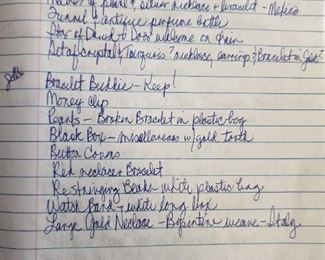 of pearl & silver necklace & bracelet - Mexico
Funnel & antique perfume bottle
Star of David & Door welcome on chain
Set of crystal & Turquois? necklace, earrings & Bracelet in
Bracelet Buddie - Keep!
Money clip
Pearls - Broken Bracelet in plastic bag
Black Box - miscellaneous w/ gold tooth
Button Covers
Red necklace & Bracelet
Restringing Beads white plastic bag
Watch Band & white long box
Large Gold Necklace - Byzantine weave - Italy